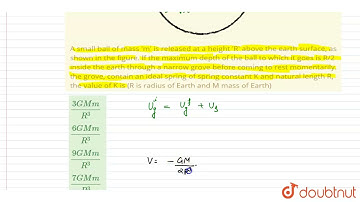 A small ball of mass 'm' is released at a height 'R' above the earth surface, as
shown in the figure. If the maximum depth of the ball to which it goes is R/2
inside the earth through a narrow grove before coming to rest momentarily.
the grove, contain an ideal spring of spring constant K and natural length R,
the value of K is (R is radius of Earth and M mass of Earth)
3GMm
R³
6GMm
R³
9GMm
R³
7GMm
R³
U_g^i = U_g^f + U_s
V = - GM
doubtnut